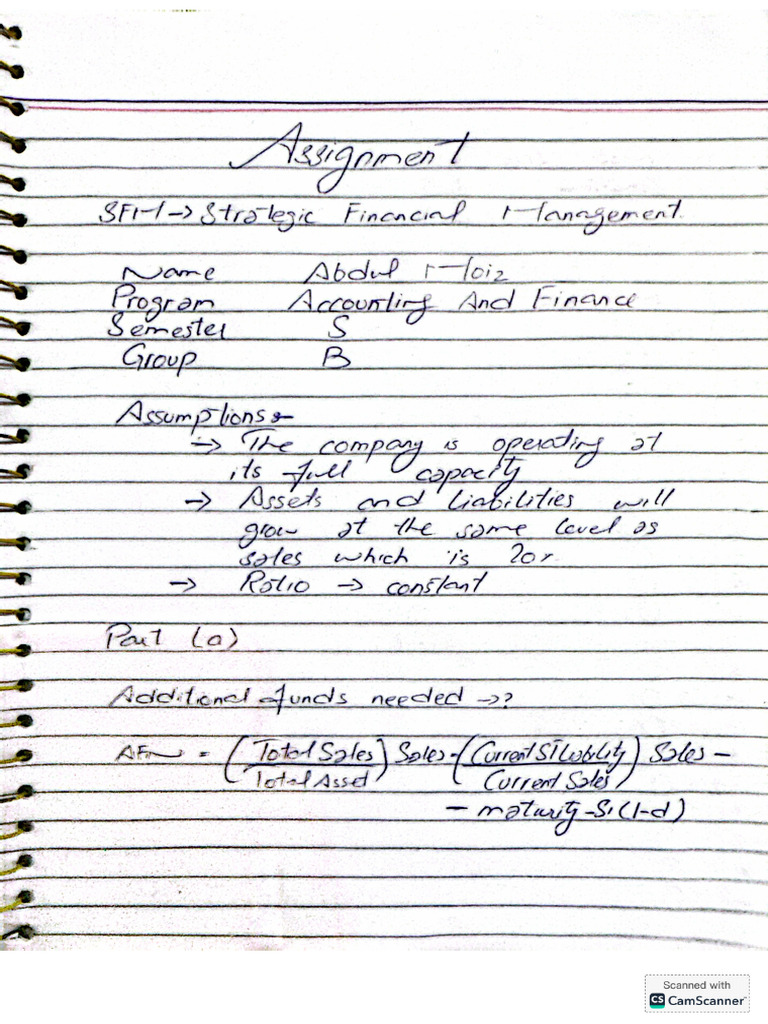 Assignment
SFM → Strategic Financial Management.
Name Abdul Moiz
Program Accounting And Finance
Semester 5
Group B
Assumptions :-
→ The company is operating at
its full capacity
→ Assets and liabilities will
grow at the same level as
sales which is 20%
→ Ratio → constant
Part (a)
Additional funds needed →?
AFN = (Total Sales / Total Asset) Sales - (Current ST Liability / Current Sales) Sales -
- maturity - S1(1-d)
Scanned with
CS CamScanner